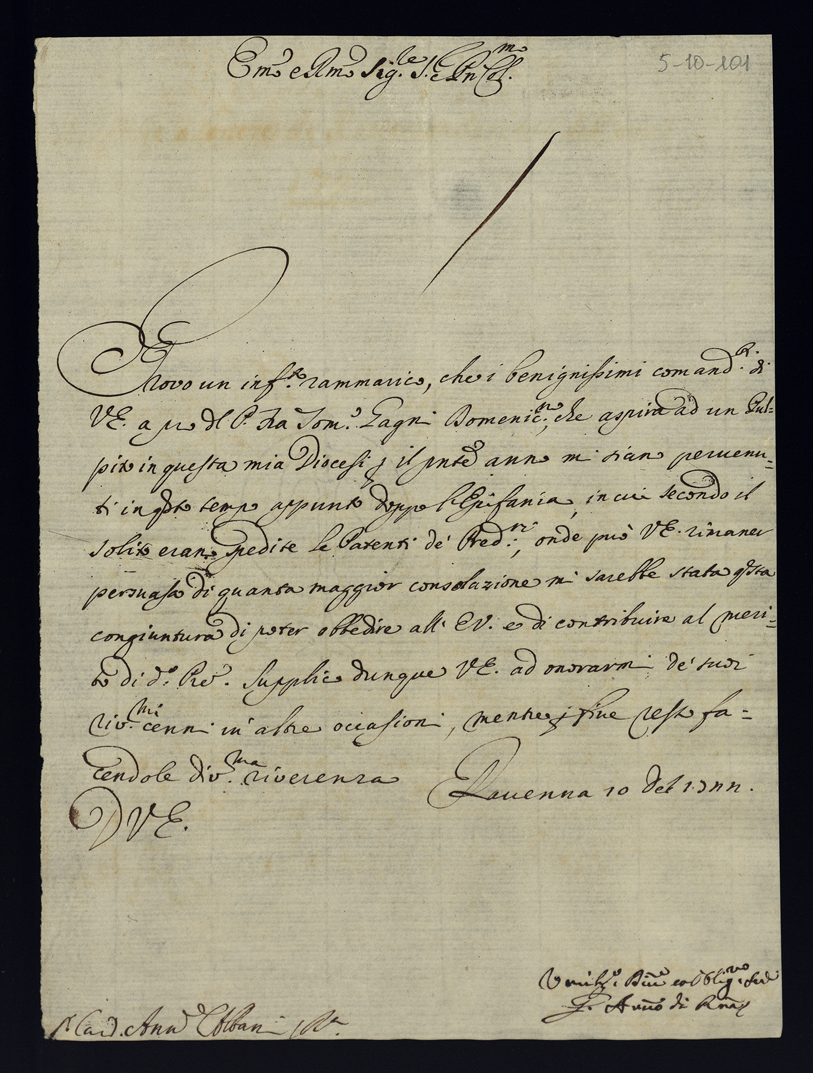 Em.o e Rm.o Sig.re S.e Pn Col.mo
5-10-101
Provo un inf.to rammarico, che i benignissimi comand.ti di
VE. a pro dl P. Fra Tom.o Gagni Domenic.no, che aspira ad un Pul=
pito in questa mia Diocesi p il pnte anno mi siano pervenu=
ti in qsto tempo appunto doppo l'Epifania, in cui secondo il
solito erano spedite le Patenti de' Pred.ri, onde può VE. rimaner
persuasa di quanta maggior consolazione mi sarebbe stata qsta
congiuntura di poter obbedire all' EV. e di contribuire al meri=
to di d.o Re. Supplico dunque VE. ad onorarmi de' suoi
riv.mi cenni in altre occasioni, mentre p fine resto fa=
cendole div.ma riverenza
Ravenna 10 del
D VE.
Umil.o e Oblig.mo
di
Card. Ann. Albani